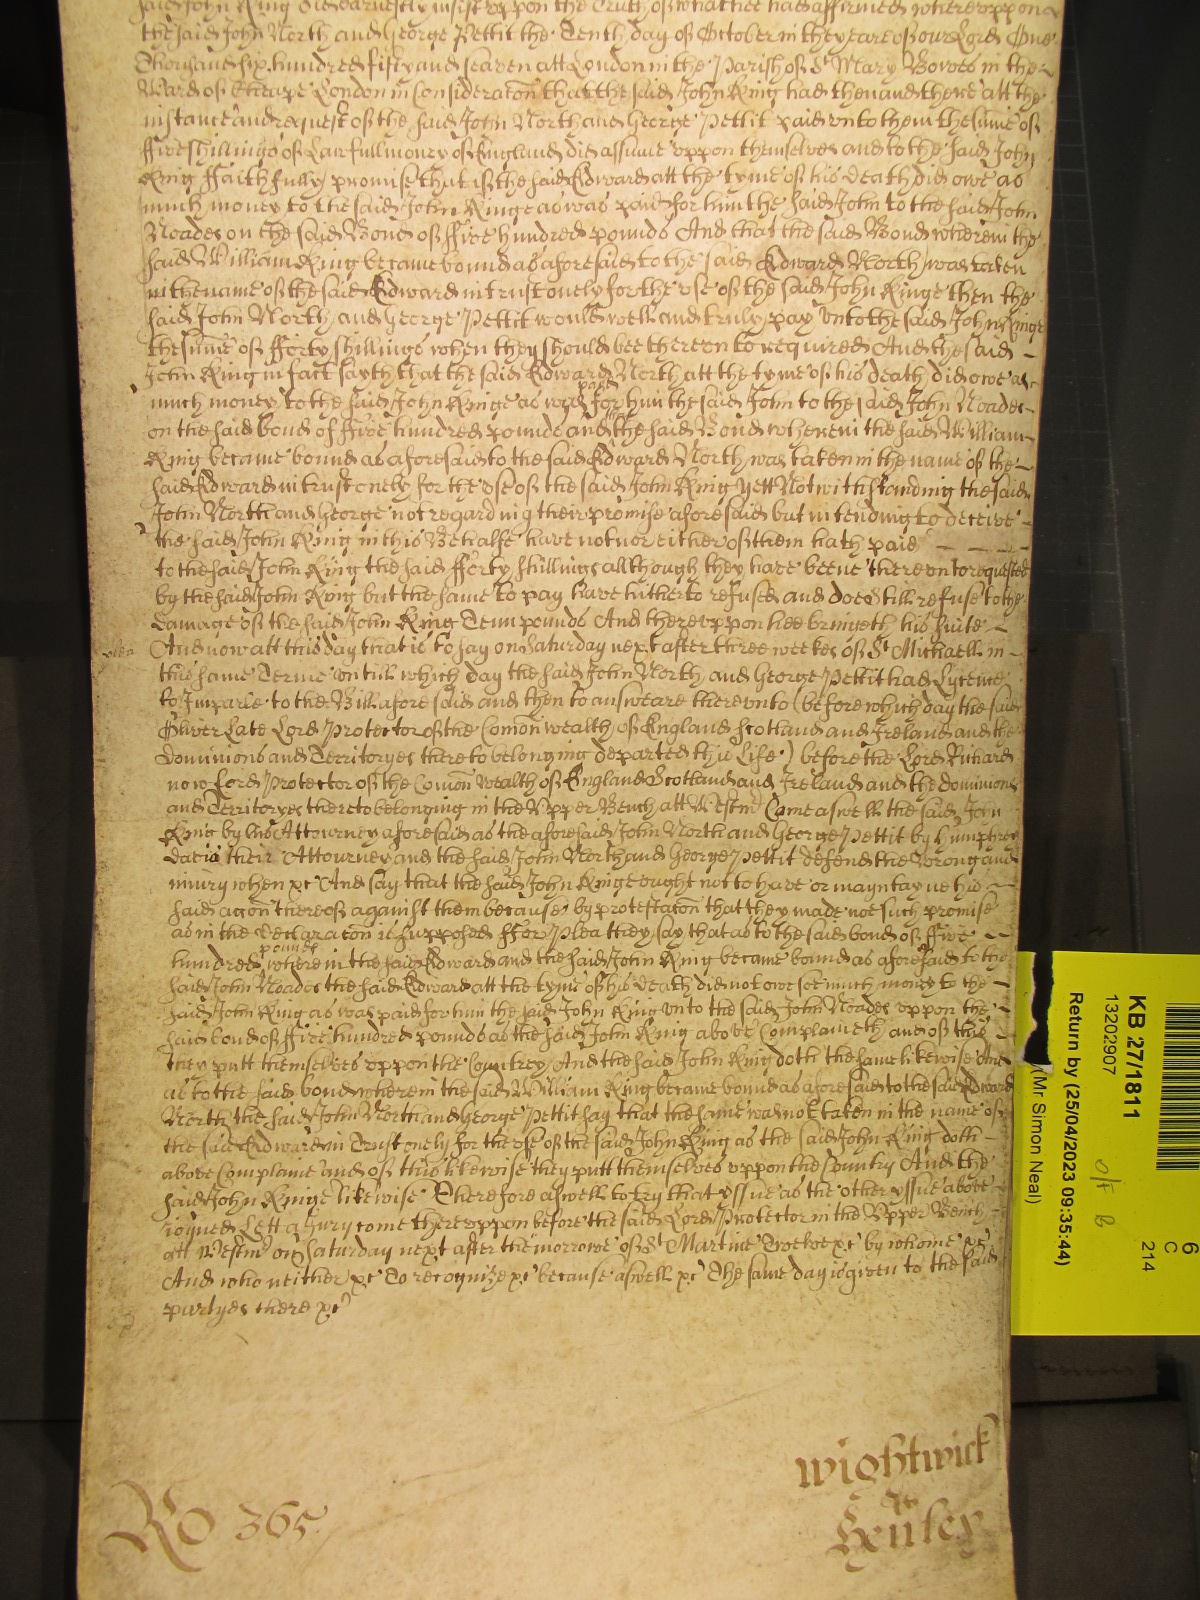 said John King did earnestly insist uppon the Truth of what hee had affirmed whereuppon
the said John North and George Pettit the Tenth day of October in the yeare of our Lord One
Thousand six hundred fifty and seaven att London in the Parish of St Mary Bowes in the
Ward of Cheape London in Consideracon that the said John King had then and there att the
instance and request of the said John North and George Pettit paid unto them the sume of
ffive shillings of Lawfull money of England did assume uppon themselves and to the said John
King ffaithfully promise that if the said Edward att the tyme of his death did owe as
much money to the said John Kinge as was paid for him the said John to the said John
Noades on the said Bond of ffive hundred pounds And that the said Bond wherein the
said William King became bound as aforesaid to the said Edward North was taken
in the name of the said Edward in trust onely for the use of the said John Kinge then the
said John North and George Pettit would well and truly pay unto the said John Kinge
the sume of fforty shillings when they should bee thereunto required And the said
John King in fact sayth that the said Edward North att the tyme of his death did owe as
much money to the said John Kinge as was paid for him the said John to the said John Noades
on the said bond of ffive hundred pounds and the said Bond wherein the said William
King became bound as aforesaid to the said Edward North was taken in the name of the
said Edward in trust onely for the use of the said John King yett Notwithstanding the said
John North and George not regarding their promise aforesaid but intending to deceive
the said John King in this Behalfe have not nor either of them hath paid
to the said John King the said fforty shillings allthough they have beene thereunto requested
by the said John King but the same to pay have hitherto refused and doe still refuse to the
damage of the said John King Tenn pounds And thereuppon hee bringeth his suite
And now att this day that is to say on Saturday next after three weekes of St Michaell in
this same Terme untill which day the said John North and George Pettit had Lycence
to Imparle to the Bill aforesaid and then to answeare thereunto (before which day the said
Oliver Late Lord Protector of the Comonwealth of England Scotland and Ireland and the
dominions and Territoryes thereto belonging departed this Life) before the Lord Richard
now Lord Protector of the Comon wealth of England Scotland and Ireland and the dominions
and Territoryes thereto belonging in the Upper Bench att Westmr Came aswell the said John
King by his Attourney aforesaid as the aforesaid John North and George Pettit by Humphrey
Davis their Attourney and the said John North and George Pettit defend the wrong and
injury when &c And say that the said John Kinge ought not to have or mayntayne his
said accon thereof against them because by protestacon that they made not such promise
as in the Declaracon is supposed ffor Plea they say that as to the said bond of ffive
hundred pounds wherein the said Edward and the said John King became bound as aforesaid to the
said John Noades the said Edward att the tyme of his death did not owe soe much money to the
said John King as was paid for him the said John King unto the said John Noades uppon the
said bond of ffive hundred pounds as the said John King above Complaineth and of this
they putt themselves uppon the Countrey And the said John King doth the same likewise And
as to the said bond wherein the said William King became bound as aforesaid to the said Edward
North the said John North and George Pettit say that the same was not taken in the name of
the said Edward in Trust onely for the use of the said John King as the said John King doth
above Complaine and of this likewise they putt themselves uppon the Country And the
said John Kinge likewise Therefore aswell to try that yssue as the other yssue above
ioyned Lett a Jury come thereuppon before the said Lord Protector in the Upper Bench
att Westmr on Saturday next after the morrowe of St Martine Twelve &c by whome &c
And who neither &c To recognize &c because aswell &c The same day is given to the said
partyes there &c
Ro 365
Wightwick
Henley
KB 27/1811
13202907
Return by (25/04/2023 09:35:44)
(Mr Simon Neal)
O/F B
6
C
214